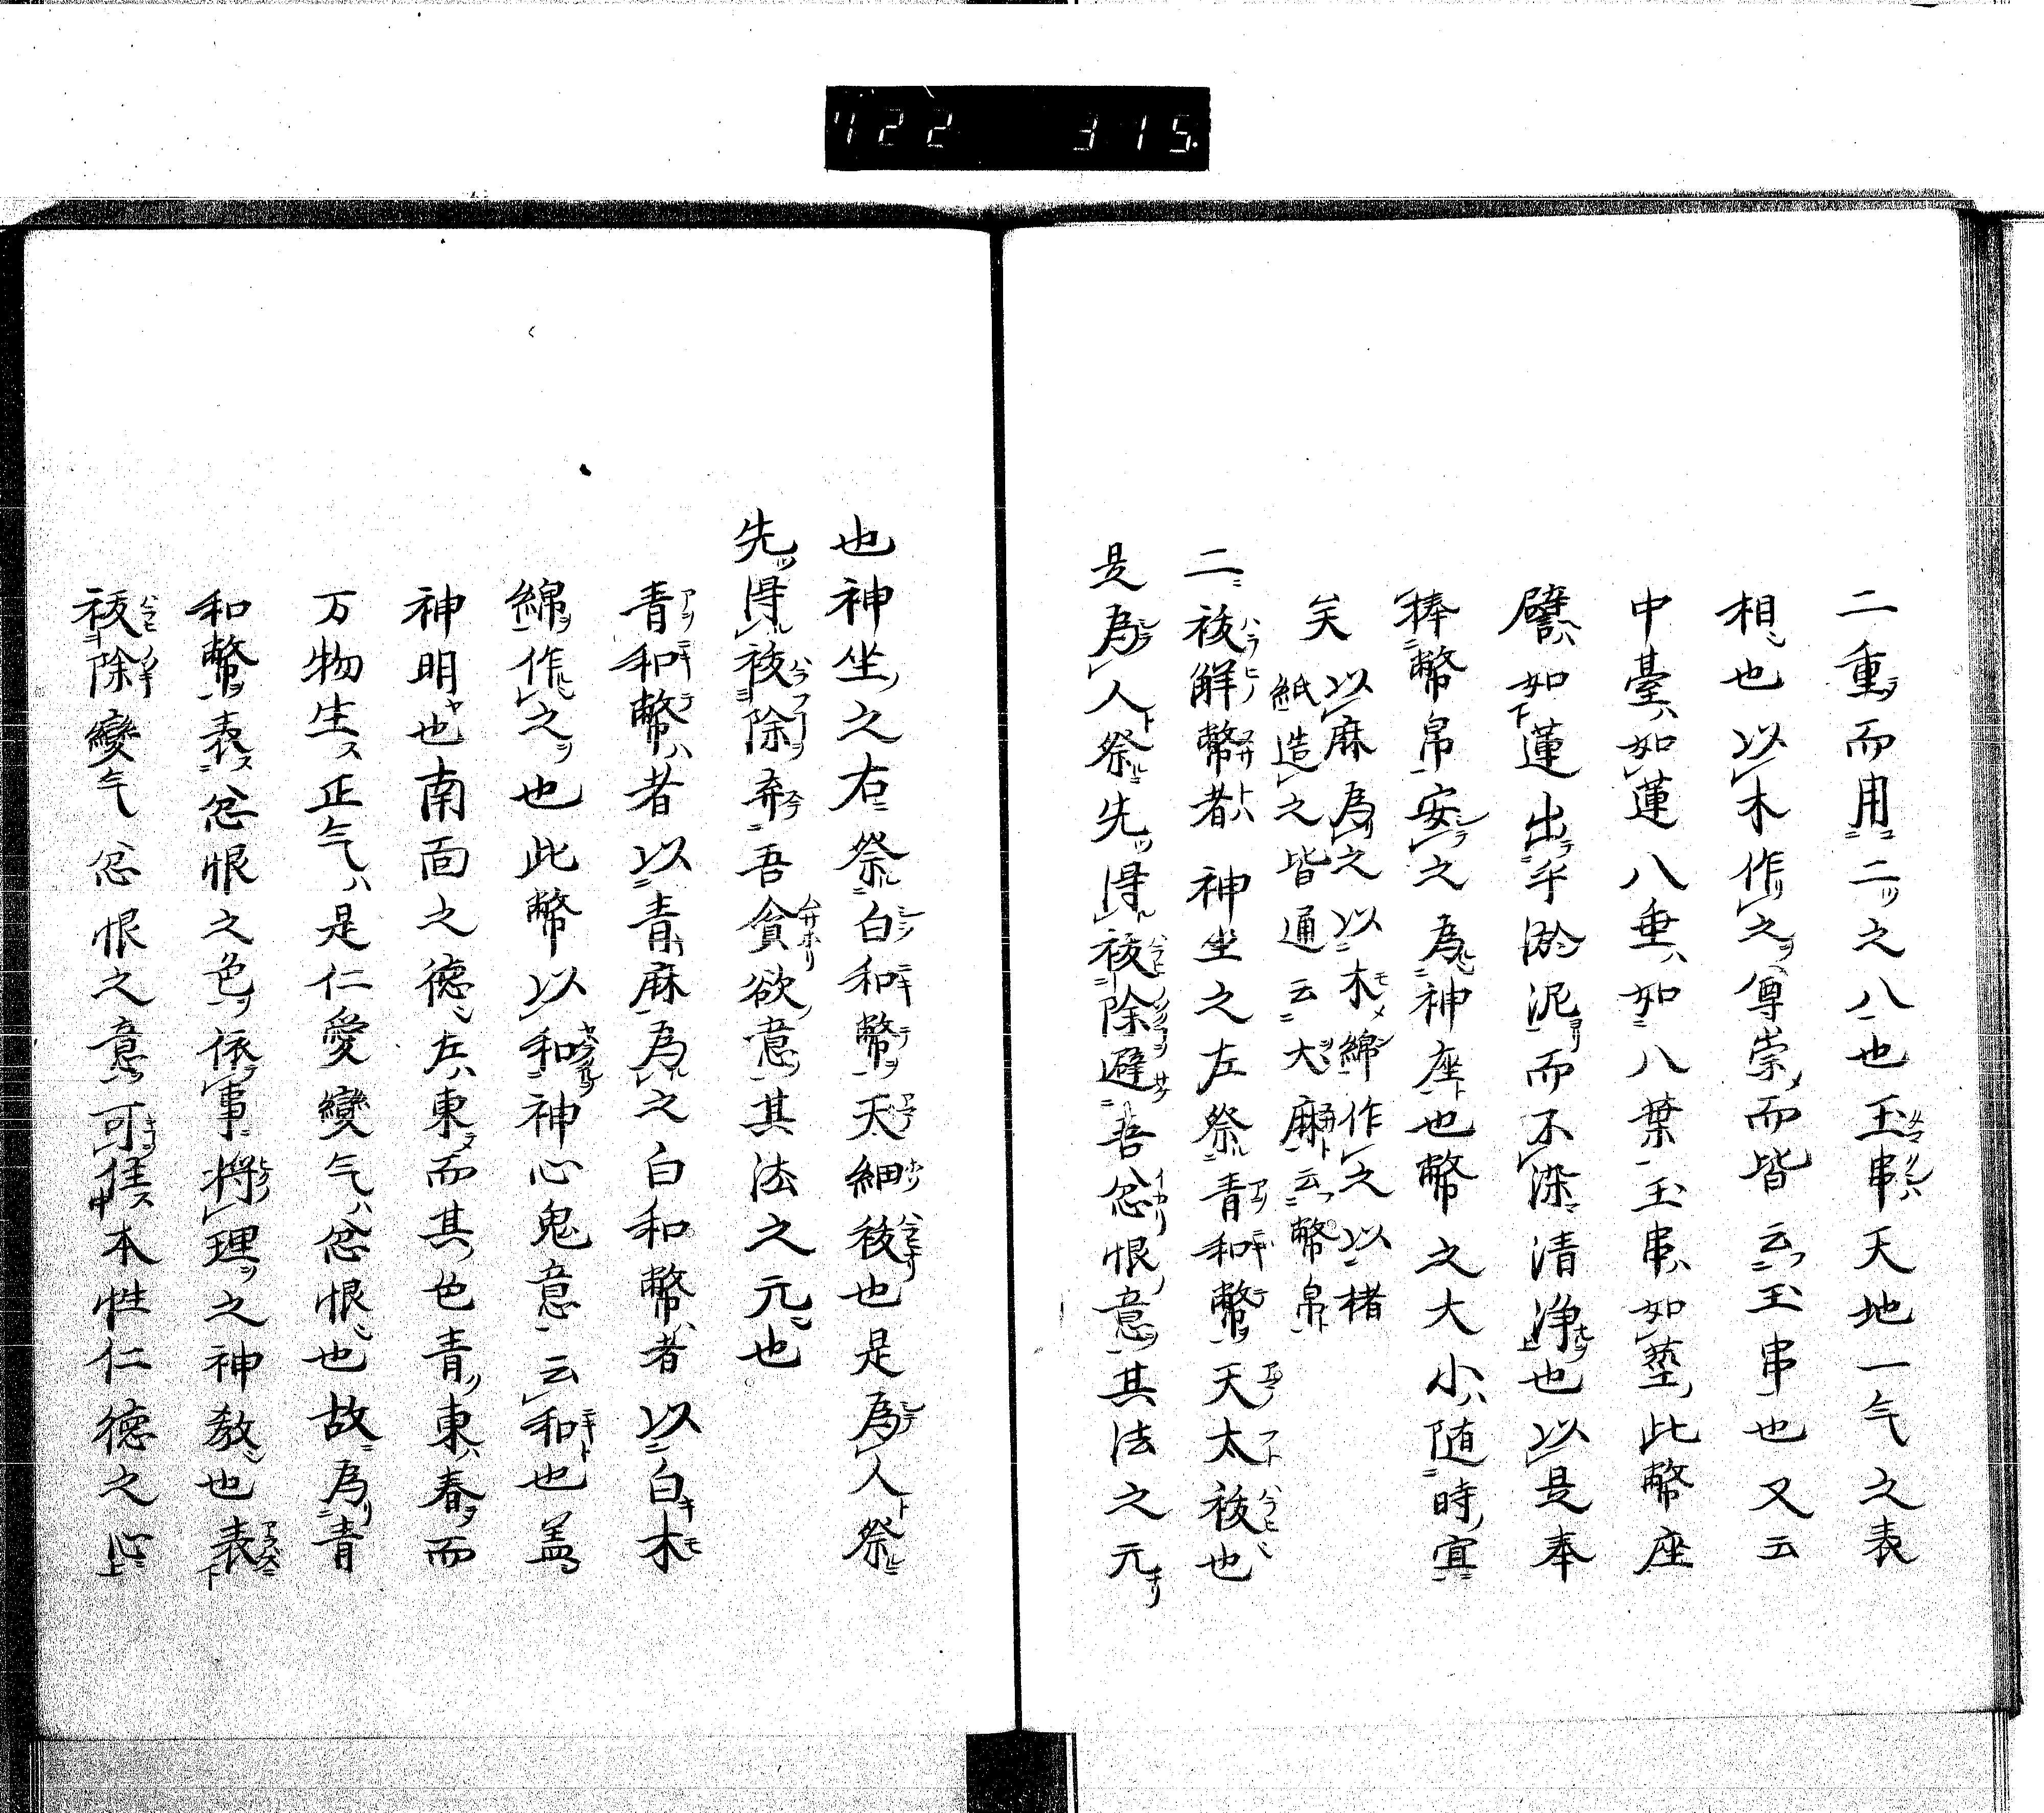 722 315
二重而用二之八也玉串天地一气之表
相也以木作之尊崇而皆云玉串也又云
中臺如蓮八垂如八葉玉串如莖此幣座
譬如蓮出乎淤泥而不染清浄也以是奉
捧幣帛安之為神座也幣之大小随時宜
矣 以麻為之以木綿作之以楮
紙造之皆通云大麻云幣帛
二祓解幣者神坐之左祭青和幣天太祓也
是為人祭先得祓除避吾忿恨意其法之元
也神坐之右祭白和幣天細祓也是為人祭
先得祓除弃吾貪欲意其法之元也
青和幣者以青麻為之白和幣者以白木
綿作之也此幣以和神心鬼意云和也盖
神明也南面之德左東而其色青東春而
万物生正气是仁愛變气忿恨也故為青
和幣表忿恨之色依事將理之神教也表
祓除變气忿恨之意可俟本性仁德之心